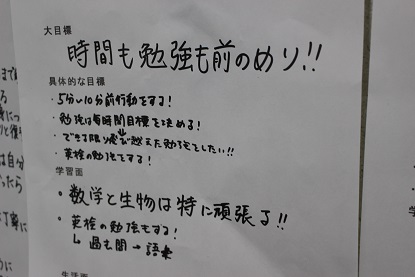 大目標
時間も勉強も前のめり!!
具体的な目標
・5分い10分前行動をする!
・勉強は毎時間目標を決める!
・できる限り
越えた勉強をしたい!!
・英検の勉強をする!
学習面
・数学と生物は特に頑張る!!
・英検の勉強もする!
↳ 過去問→語
生活面